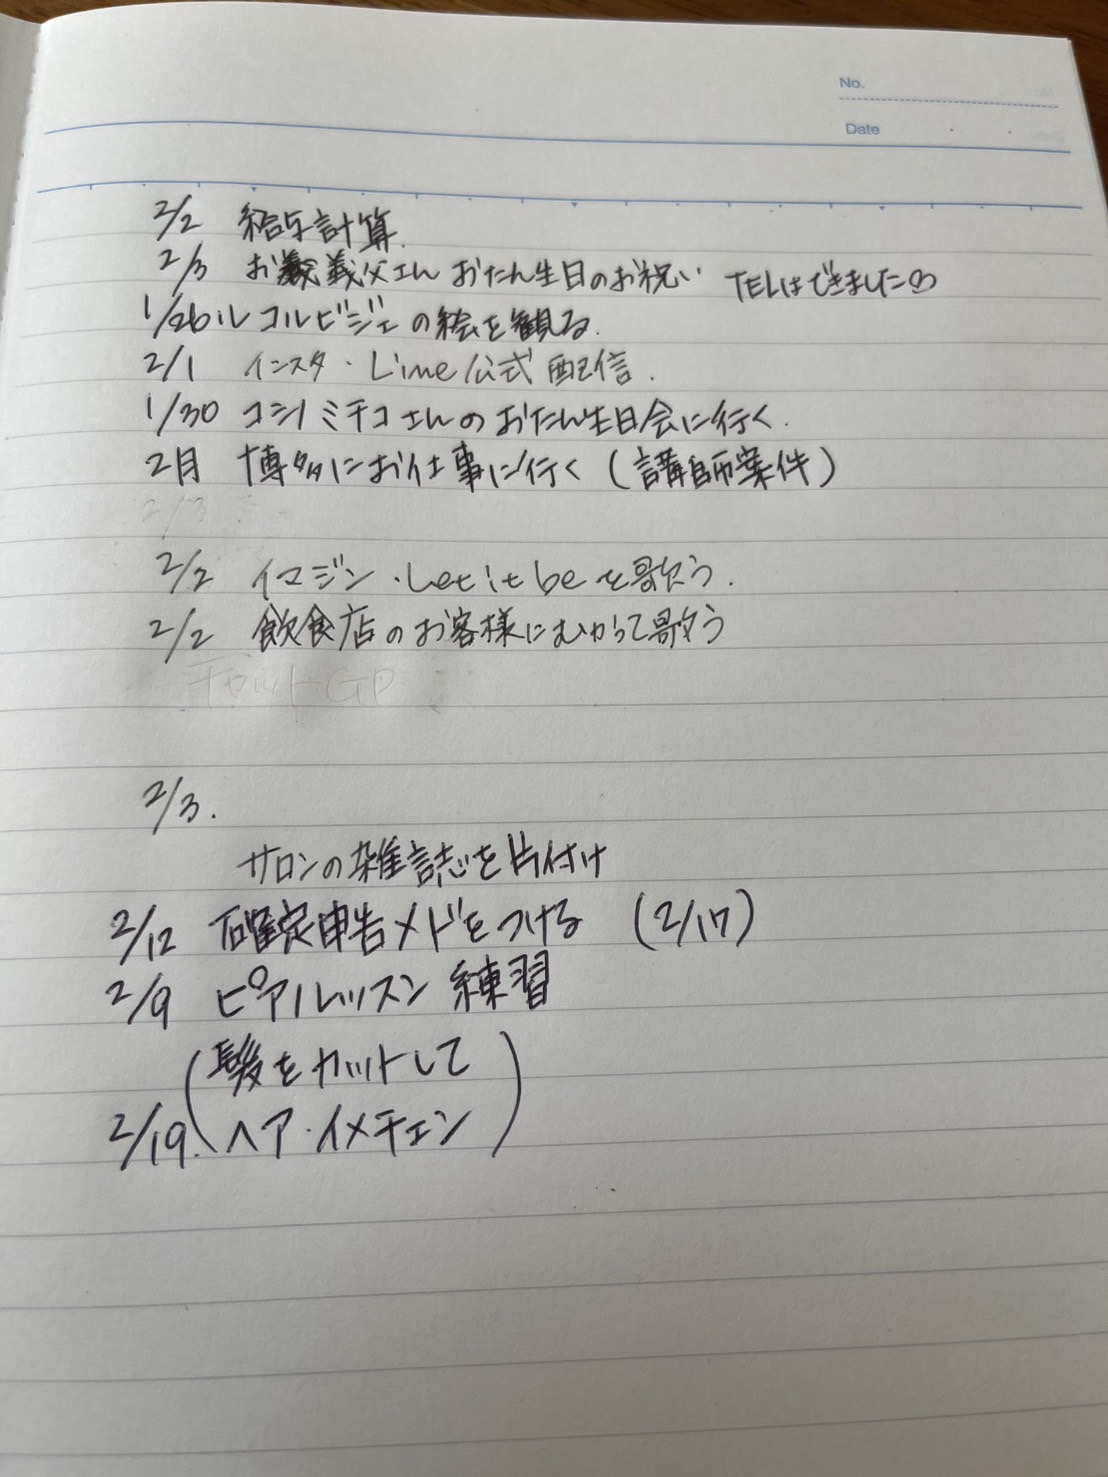 No.
Date
2/2 給与計算.
2/3 お義父さん おたん生日のお祝い TELはできました♡
1/26 ル コルビジェの絵を観る.
2/1 インスタ・Lime公式配信.
1/30 コシノミチコさんのおたん生日会に行く.
2月 博多にお仕事に行く (講師案件)
2/3
2/2 イマジン・Let it beを歌う.
2/2 飲食店のお客様にむかって歌う
チャットGP
2/3.
サロンの雑誌を片付け
2/12 確定申告メドをつける (2/17)
2/9 ピアルレッスン 練習
(髪をカットして
2/19. ヘア・イメチェン)